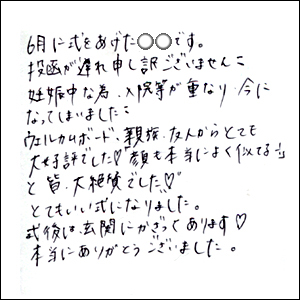 6月に式をあげた○○です。
投函が遅れ申し訳ございません
妊娠中な為、入院等が重なり、今に
なってしまいました
ウェルカムボード、親族、友人からとても
大好評でした♡"顔も本当によく似てる!!"
と皆、大絶賛でした♡
とてもいい式になりました。
式後は、玄関にかざってあります♡
本当にありがとうございました。